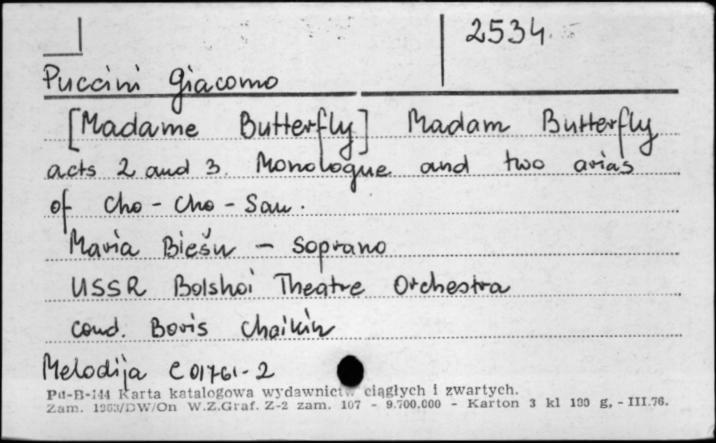 2534.
Puccini Giacomo
[Madame Butterfly] Madam Butterfly
acts 2 and 3. Monologue and two arias
of Cho-Cho-San.
Maria Bieşu - soprano
USSR Bolshoi Theatre Orchestra
cond. Boris Chaikin
Melodija C 01761-2
Pu-B-144 Karta katalogowa wydawnictw ciągłych i zwartych.
Zam. 1963/DW/On W.Z.Graf. Z-2 zam. 107 - 9.700.000 - Karton 3 kl 190 g. - III.76.